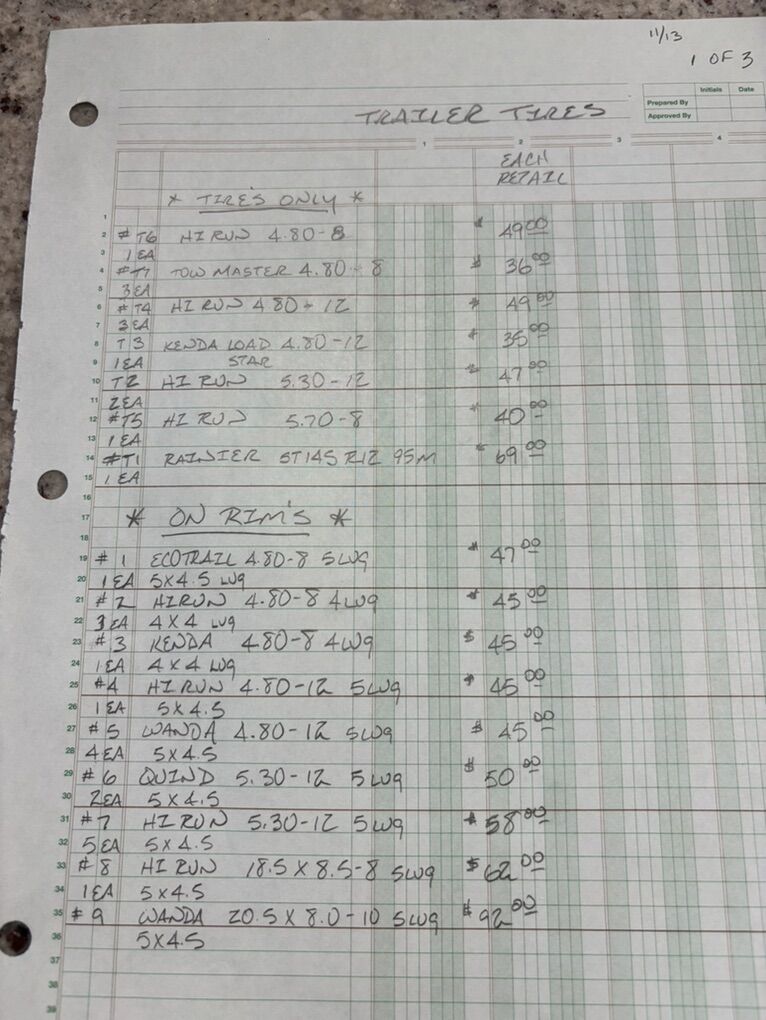 11/13
1 OF 3
Initials Date
Prepared By
Approved By
TRAILER TIRES
1 2 3 4
EACH
RETAIL
* TIRE'S ONLY *
1
2 #T6 HI RUN 4.80-8 $ 49.00
3 1 EA
4 #T7 TOW MASTER 4.80-8 $ 36.00
5 3 EA
6 #T4 HI RUN 4.80-12 $ 49.00
7 3 EA
8 T3 KENDA LOAD 4.80-12 $ 35.00
9 1 EA STAR
10 T2 HI RUN 5.30-12 $ 47.00
11 2 EA
12 #T5 HI RUN 5.70-8 $ 40.00
13 1 EA
14 #T1 RAINIER ST145 R12 95M $ 69.00
15 1 EA
16
17 * ON RIM'S *
18
19 #1 ECOTRAIL 4.80-8 5 LUG $ 47.00
20 1 EA 5X4.5 LUG
21 #2 HIRUN 4.80-8 4 LUG $ 45.00
22 3 EA 4X4 LUG
23 #3 KENDA 4.80-8 4 LUG $ 45.00
24 1 EA 4X4 LUG
25 #4 HI RUN 4.80-12 5 LUG $ 45.00
26 1 EA 5X4.5
27 #5 WANDA 4.80-12 5 LUG $ 45.00
28 4 EA 5X4.5
29 #6 QUIND 5.30-12 5 LUG $ 50.00
30 2 EA 5X4.5
31 #7 HI RUN 5.30-12 5 LUG $ 58.00
32 5 EA 5X4.5
33 #8 HI RUN 18.5 X 8.5-8 5 LUG $ 62.00
34 1 EA 5X4.5
35 #9 WANDA 20.5 X 8.0-10 5 LUG $ 92.00
36 5X4.5
37
38
39